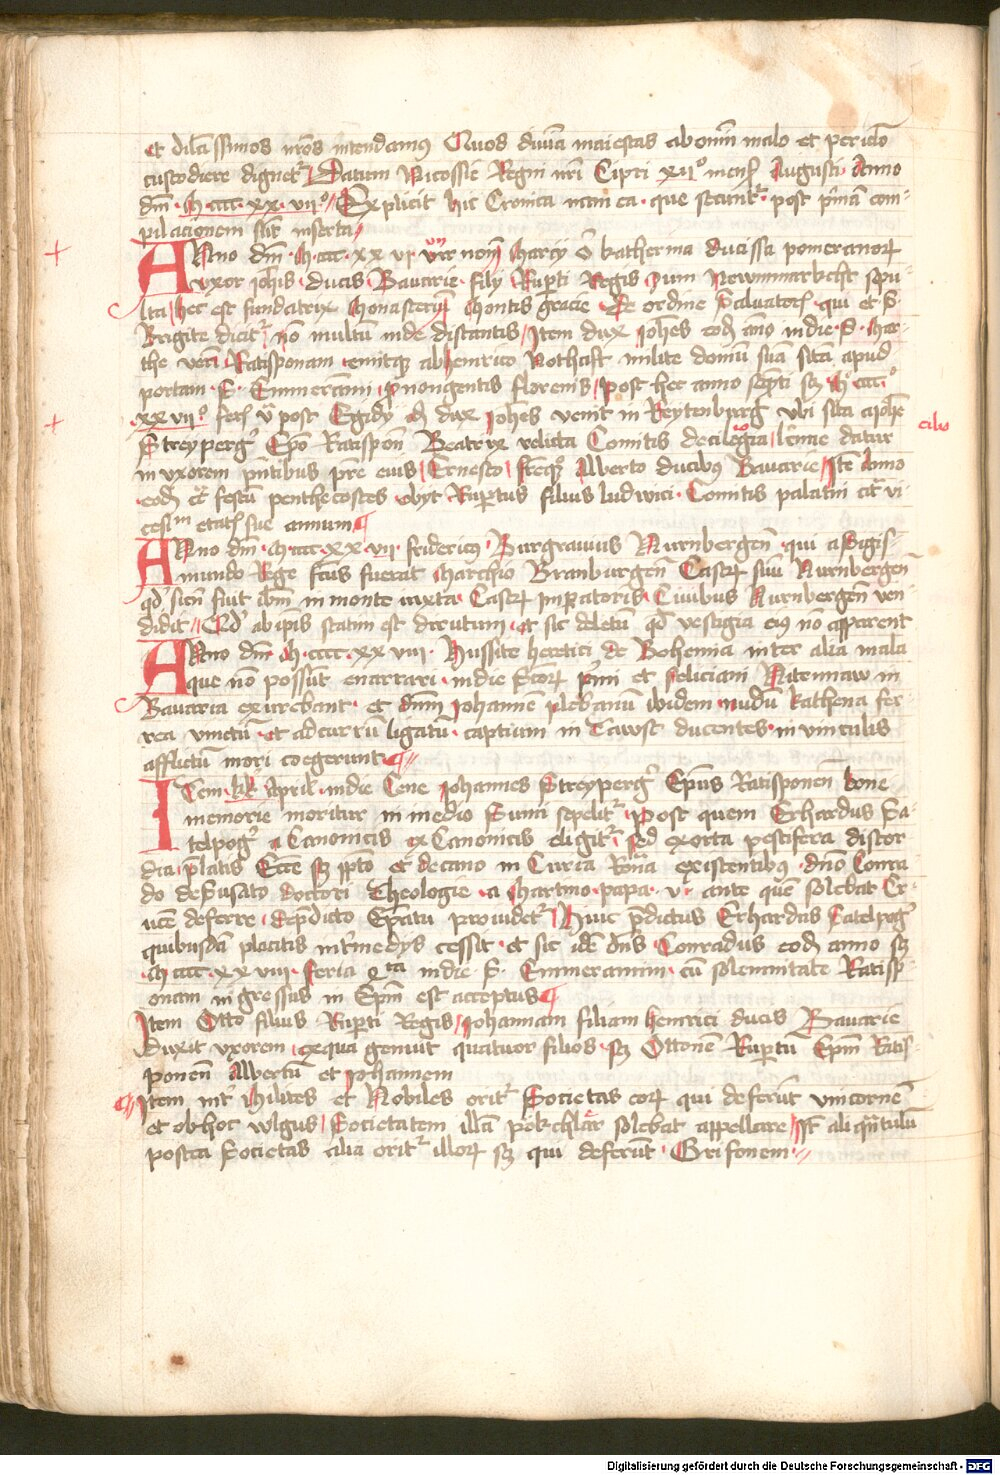 et dilcīssimos nr̄os intendamꝰ Quos diuīa maiestas ab om̄i malo et periclo
custodiere dignetꝰ Datum Nicossie Regni nr̄i Cipri xxiiº mens̄ Augusti Anno
dm̄ · M · cccc · xx · viiº Explicit hic Cronica nam ea · que secuntꝰ · post prīmā com-
pilacionem sūt inserta
Anno dm̄ · M · cccc · xx vi · non̄ Marcÿ ō katherina ducissa pomeranoꝝ
vxor joh̄is · ducis · Bauarie · filÿ Rup̄ti Regis · Newnmarkcht sepu-
lta hec est fundatrix Monasterij Montis gracie De ordine Saluatoris qui et S ·
Brigite dicitꝰ nō multum inde distantis Item dux joh̄es eod̄ āno in die · S · Mar-
the ven̄ Ratisponam emitqꝫ ab henrico Nothaft milite domū suā sitā apud
portam · S · Emmerāmi p nongentis florenis Post hec anno seq̄nti sꝫ Mº cccc
xx viiº ferī vͣ post Egidÿ dux joh̄es venit in Reytenpurg vbi sibi a joh̄e
Streypergꝰ Epō Ratispoñ Beatrix relicta Comitis de cilegia lēnie datur
cilie
in vxorem p̄ntibus pr̄e eius Ernesto fr̄eqꝫ Alberto ducibus Bauarie Itē Anno
eod̄ cͬ festū penthecostes obyt Rup̄tus filius ludwici · Comitis palatini citͬ vi-
cesīm etatis sue annum
Anno dm̄ · M · cccc · xx · vii · fridericꝰ · Burgrauius Nurnbergeñ · qui a Sigis-
mundo Rege fc̄us fuerat Marchio Branburgeñ Castrꝝ suū Nurnbergeñ
qd̄ situm fuit ibm̄ in monte iuxta Castrꝝ Imperatoris · Ciuibus Nurnbergeñ ven-
didit Qd̄ ab ipis statim est dirutum · et sic deletū qd̄ vestigia eiꝰ nō apparent
Anno dm̄ · M · cccc · xx viii · Hussite heretici de Bohemia inter alia mala
que nō possūt enarrari · in die sc̄oꝝ prīmi et feliciani Nitennaw in
Bauaria exurebant · et dn̄m Johannē plebanū ibidem nudū kathena fer-
rea vinctū · et ad currū ligatū · captiuum in Tawst ducentes · in vinculis
afflictū mori coegerunt
Item kł Aprił · in die Cene Johannes Streypergꝰ Ep̄us Ratisponeñ bone
memorie moritur in medio Sumi sepelitꝰ Post quem Erhardus Sa-
telpogꝰ a Canonicis ex Canonicis eligitꝰ Sed exorta pestifera discor
dia p̄latis Ecc̄e sꝫ ppto et decano in Curia Roña existentibꝰ dn̄o Conra
do de Susato doctori Theologie a Martino · papa · v · ante quē solebat Cr-
ucē deferre de p̄dicto Ep̄atu prouidetꝰ Huic p̄dictus Erhardus Satelpogꝰ
quibusdā placitis inter̄medÿs cessit · et sic idē dn̄s Conradus eod̄ anno sꝫ
· M · cccc · xx viii · feria qͬta in die S · Emmerammi · cū solemnitate Ratisp-
onam ingressus in Ep̄m est acceptus
Item Otto filius Rup̄ti Regis Johannam filiam henrici ducis Bauarie
Duxit vxorem exqua genuit quatuor filios · sꝫ Ottonē Rup̄tū Ep̄m Ratis-
poneñ Albertū et Johannem
Item int̄ Milites et Nobiles oritꝰ Societas eoꝝ qui deferūt vnicornē
et ob hoc vlgus Societatem illā pokchlär solebat appellare s̄t aliqn̄tulū
postea Societas alia oritꝰ illoꝝ sꝫ qui deferūt · Grifonem
Digitalisierung gefördert durch die Deutsche Forschungsgemeinschaft - DFG